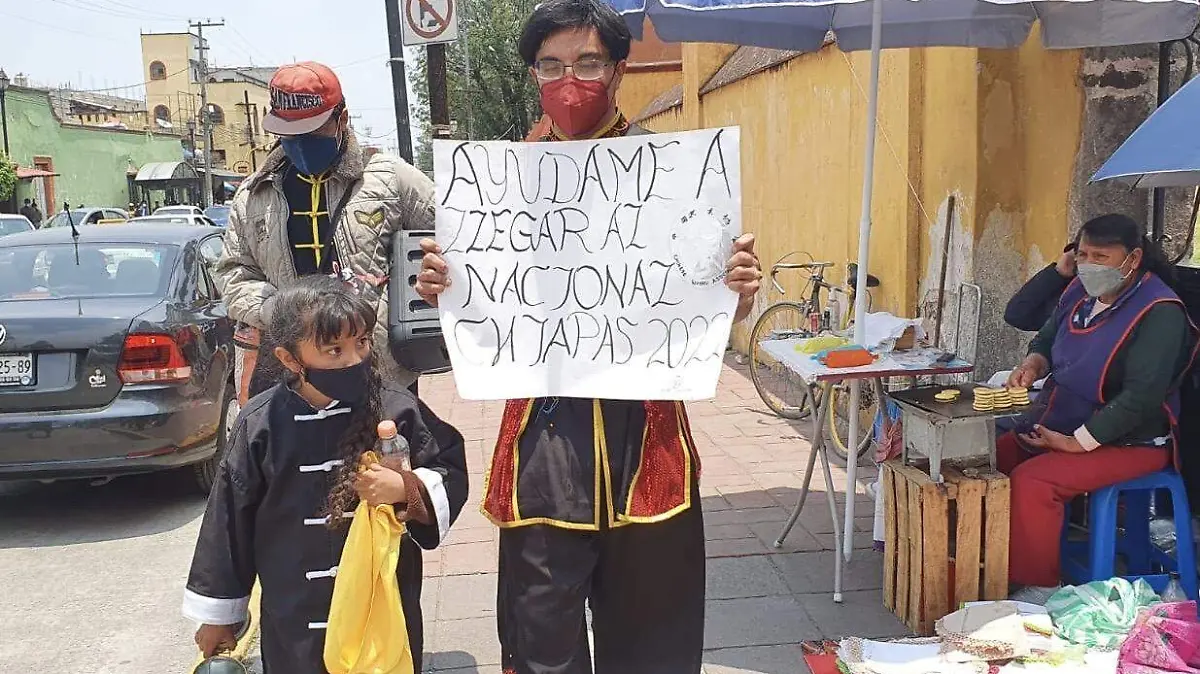 AYUDAME A
LLEGAR AL
NACIONAL
CHIAPAS 2022